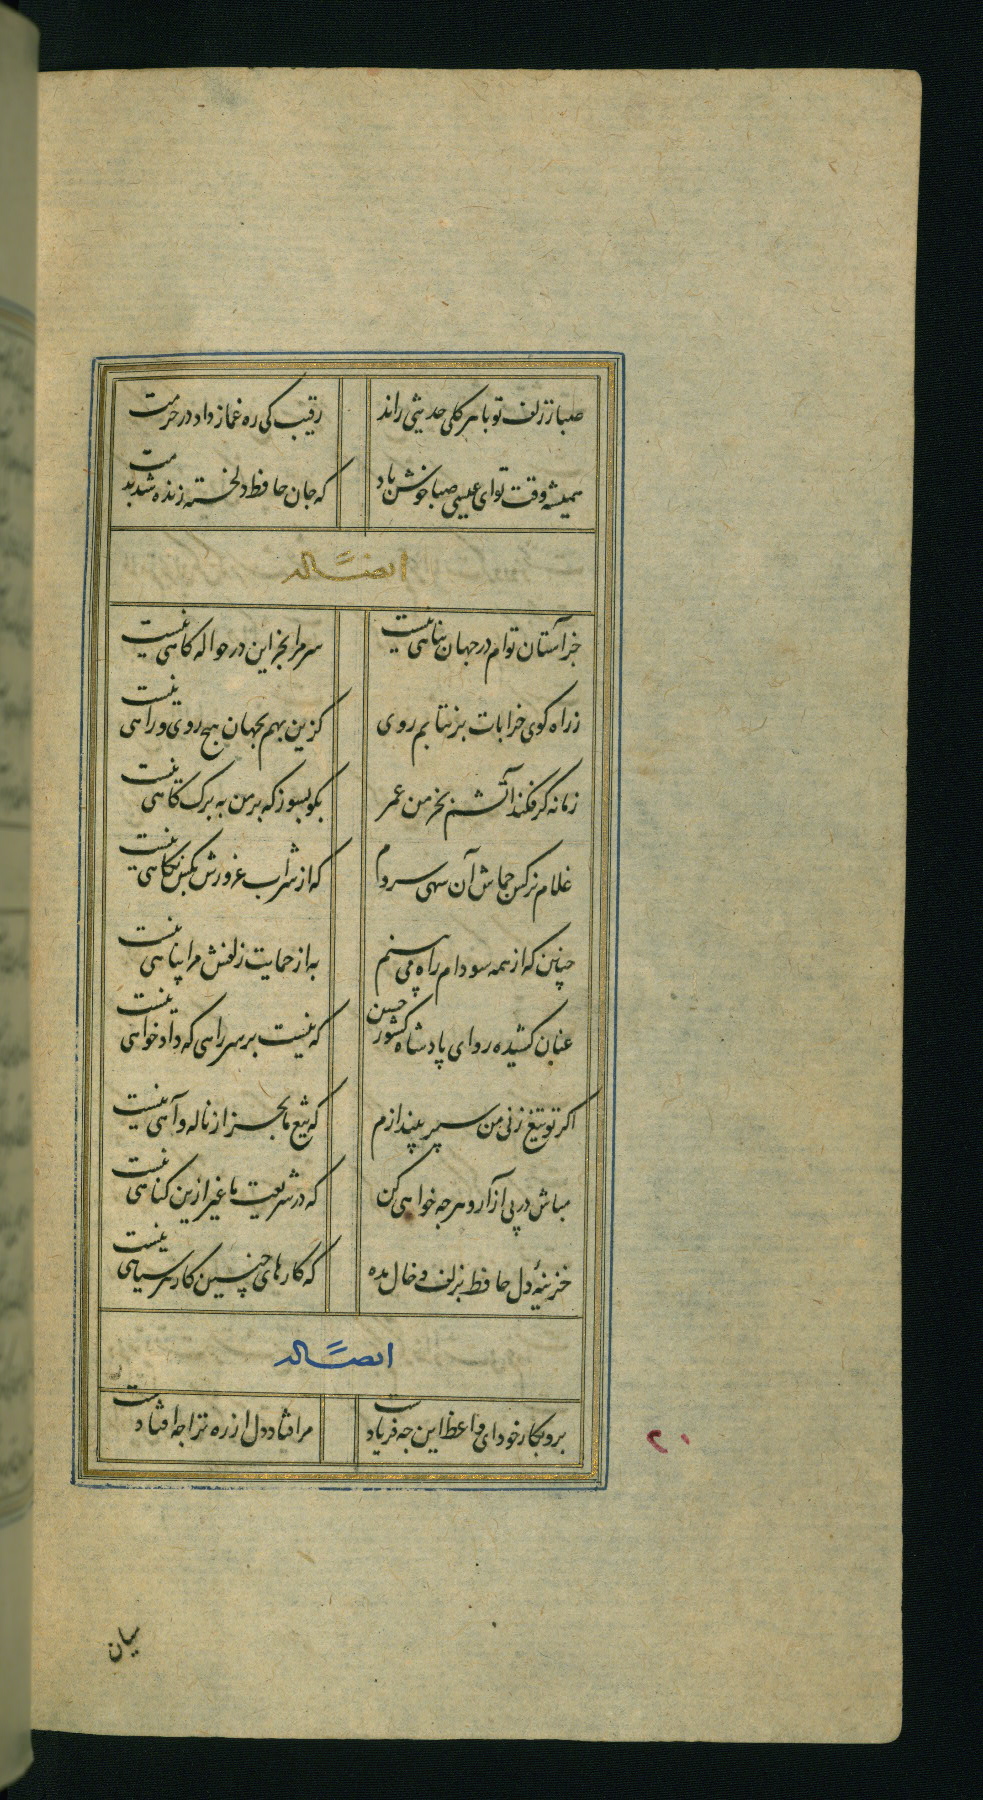 صبا ز زلف تو با هر گلی حدیثی راند رقیب کی ره غماز داد در حرمت
همیشه وقت تو ای عیسی صبا خوش باد که جان حافظ دلخسته زنده شد بدمت
ایضاً له
جز آستان توام در جهان پناهی نیست سر مرا بجز این در حواله کاهی نیست
ز راه کوی خرابات برنتابم روی کزین بهم بجهان هیچ روی و راهی نیست
زمانه کر فکند آتشم بخرمن عمر بکو بسوز که بر من به برک کاهی نیست
غلام نرکس جماش آن سهی سروم که از شراب غرورش بکس نکاهی نیست
چنین که از همه سو دام راه می بینم به از حمایت زلفش مرا پناهی نیست
عنان کشیده رو ای پادشاه کشور حسن که نیست بر سر راهی که دادخواهی نیست
اکر تو تیغ زنی من سپر بیندازم که تیغ ما بجز از ناله و آهی نیست
مباش در پی آزار و هر چه خواهی کن که در شریعت ما غیر ازین کناهی نیست
خزینهٔ دل حافظ بزلف و خال مده که کارهای چنین کار هر سیاهی نیست
ایضاً له
برو بکار خود ای واعظ این چه فریادست مرا فتاد دل از ره ترا چه افتادست
۲۰
میان